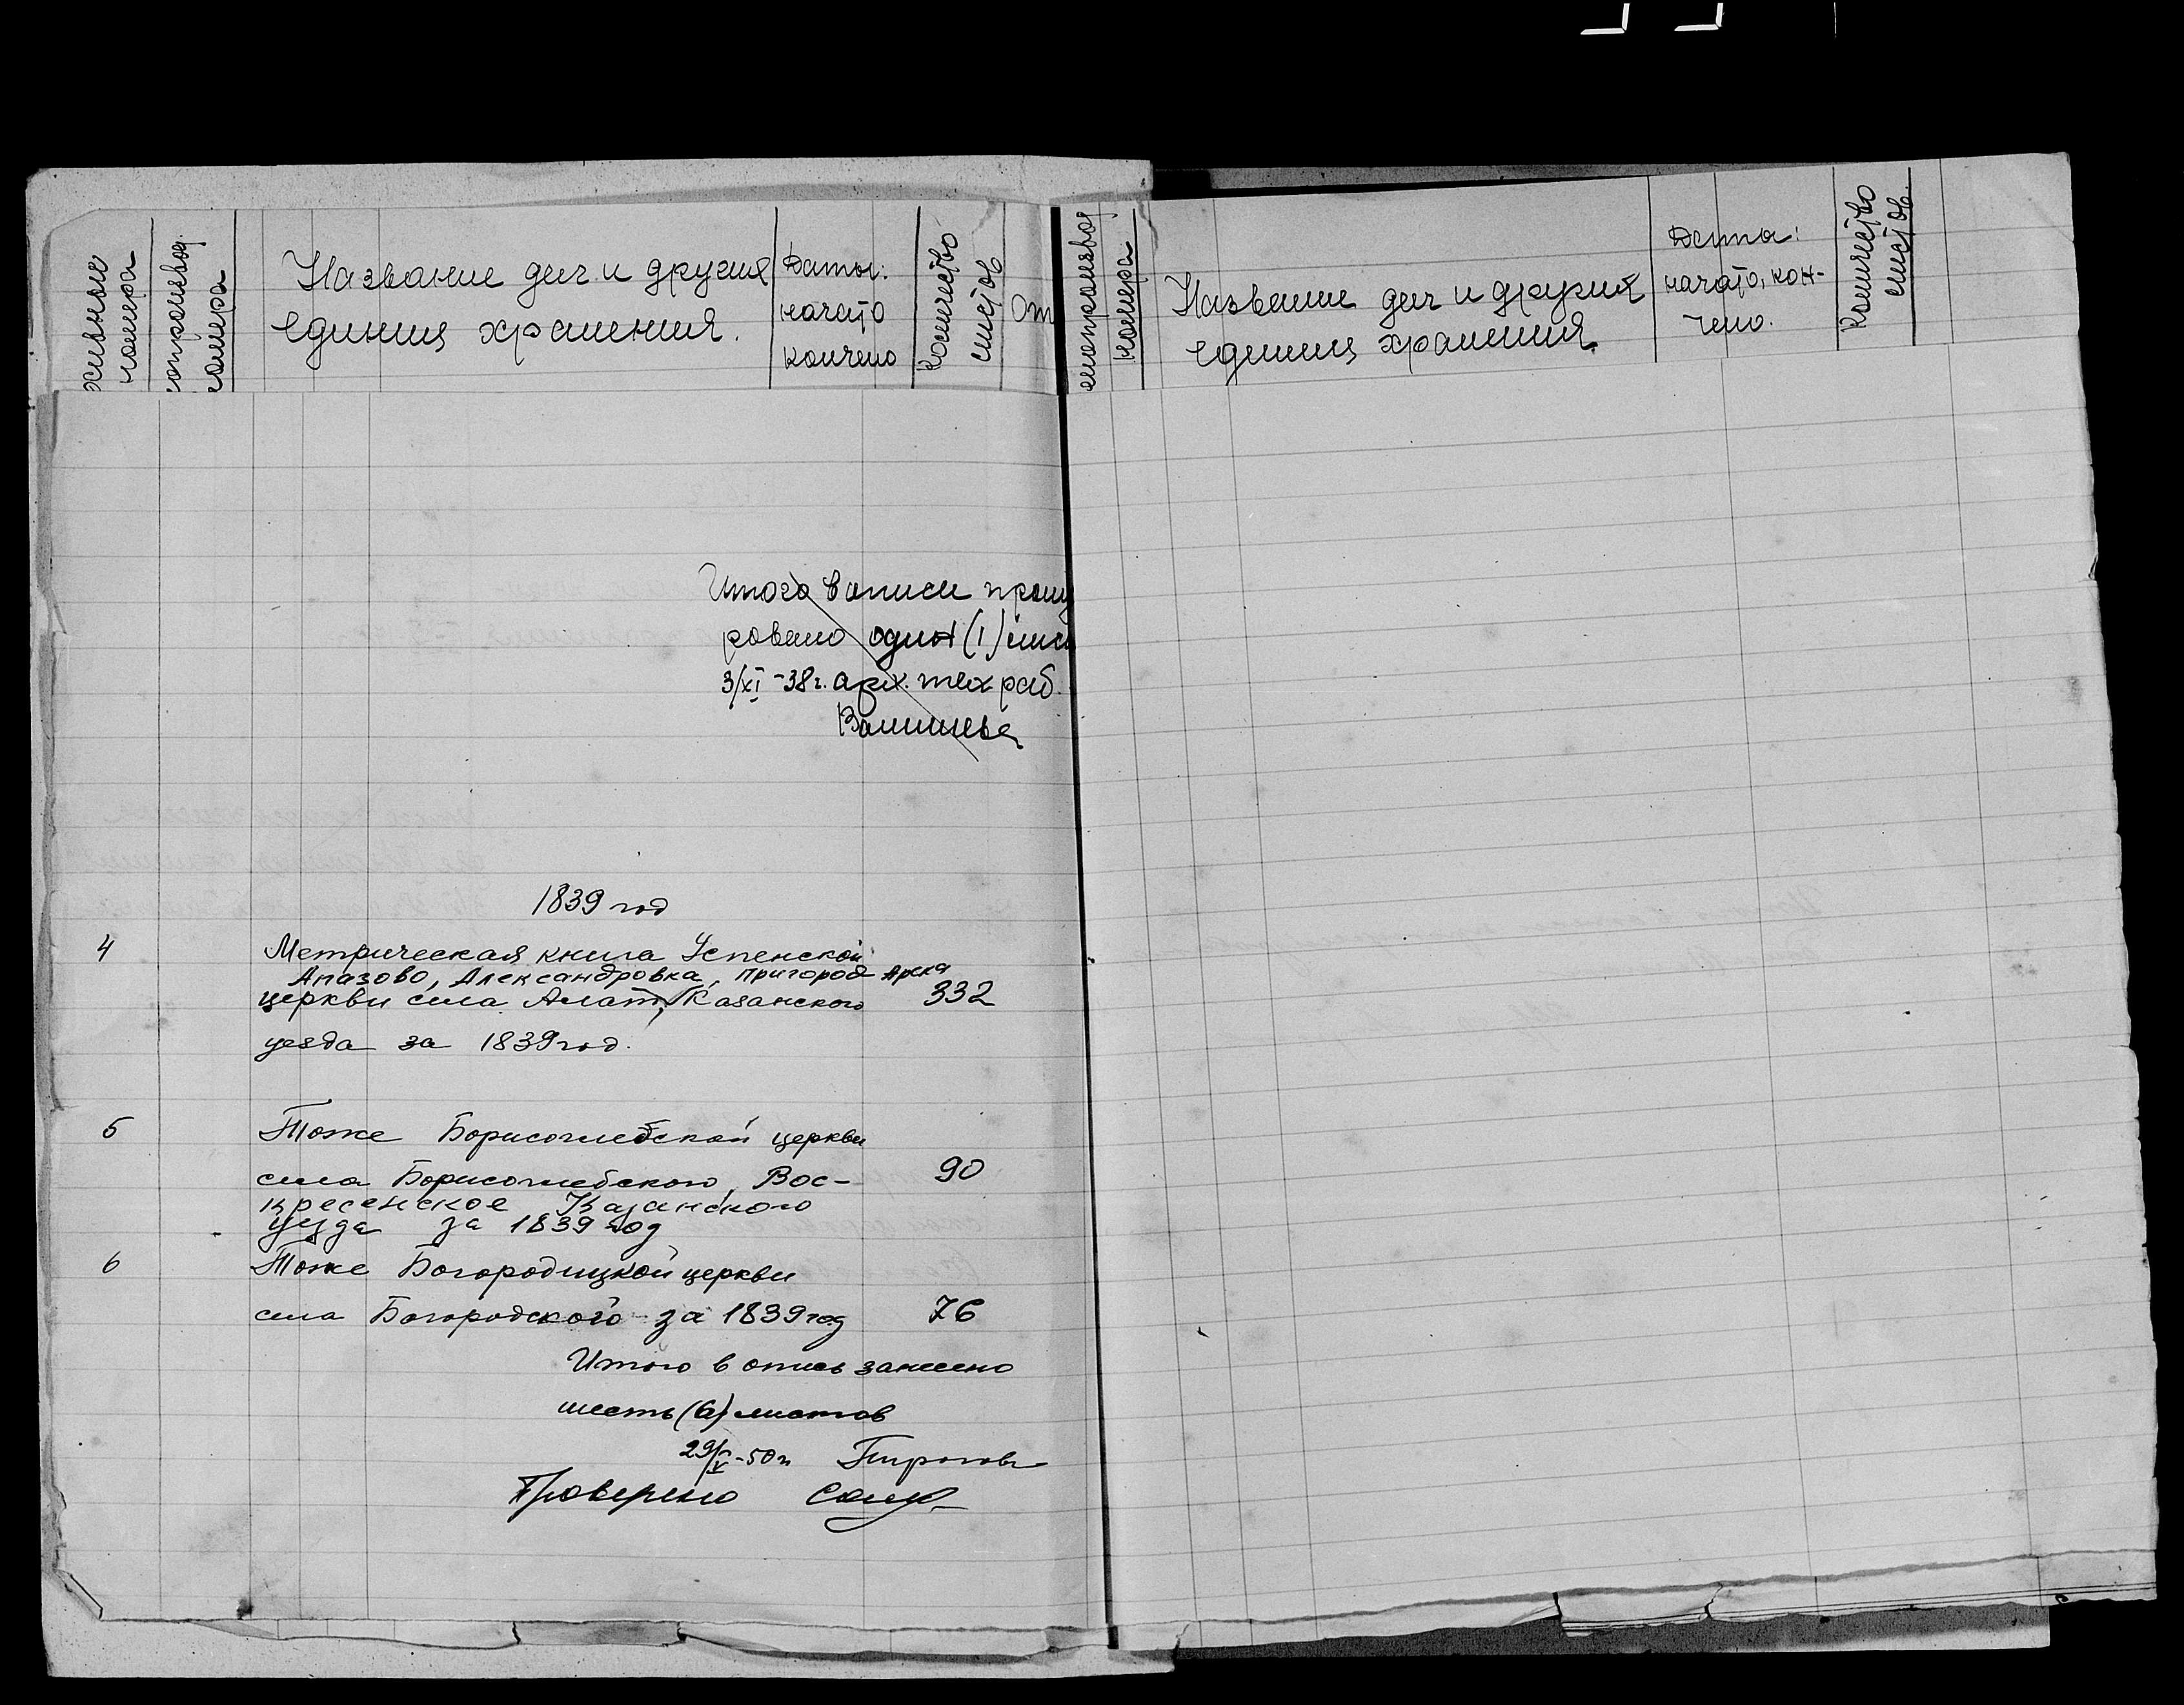 хивные
номера
опроизвод.
номера
Название дел и других
единиц хранения.
Даты:
начато
кончено
Количество
листов
От
лопроизвод
номера
Название дел и других
единиц хранения
Дата:
начато, кон-
чено.
Количество
листов.
Итого в описи прону
ровано один (1) лист
3/XI-38г. арх. тех раб.
1839 год
4
Метрическая книга Успенской
Апазово, Александровка, пригород Арска
церкви села Алат, Казанского
332
уезда за 1839 год.
5
Тоже Борисоглебской церкви
села Борисоглебского, Вос-
90
кресенское Казанского
уезда за 1839 год
6
Тоже Богородицкой церкви
села Богородского за 1839 год
76
Итого в опись занесено
шесть (6) листов
29/V-50г Пирогова
Проверено